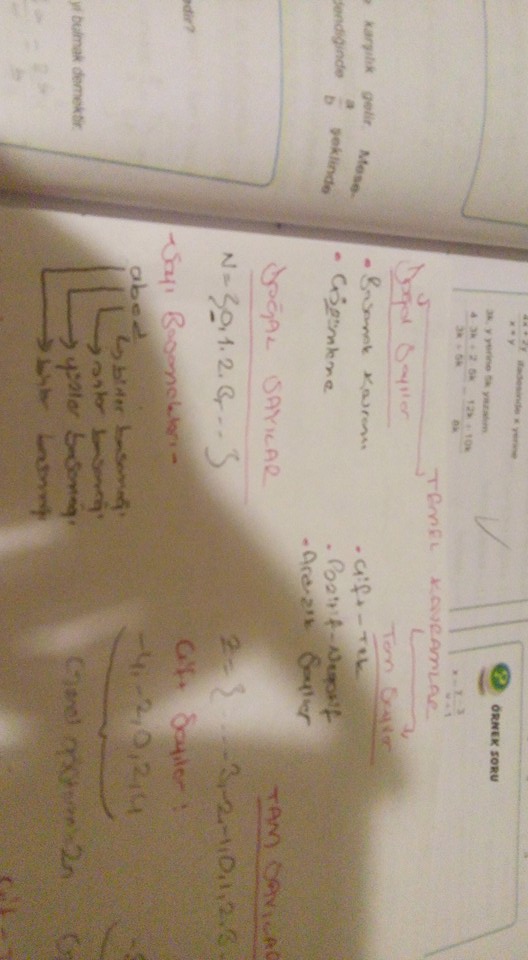 e karşılık gelir. Mese-
dendiğinde a/b şeklinde
yi bulmak demektir.
ifadesinde x yerine
3k, y yerine 5k yazalım
4.3k + 2.5k
3k + 5k
12k + 10k
8k
ÖRNEK SORU
TEMEL KAVRAMLAR
Doğal Sayılar
• Basamak Kavramı
• Çözümleme
Tam Sayılar
• Çift-Tek
• Pozitif-Negatif
• Ardışık Sayılar
DOĞAL SAYILAR
N = {0,1,2,3,...}
-Sayı Basamakları-
abcd
birler basamağı
onlar basamağı
yüzler basamağı
binler basamağı
TAM SAYILAR
Z = {...-3,-2,-1,0,1,2,3
Çift Sayılar:
-4,-2,0,2,4
Genel gösterim=2n